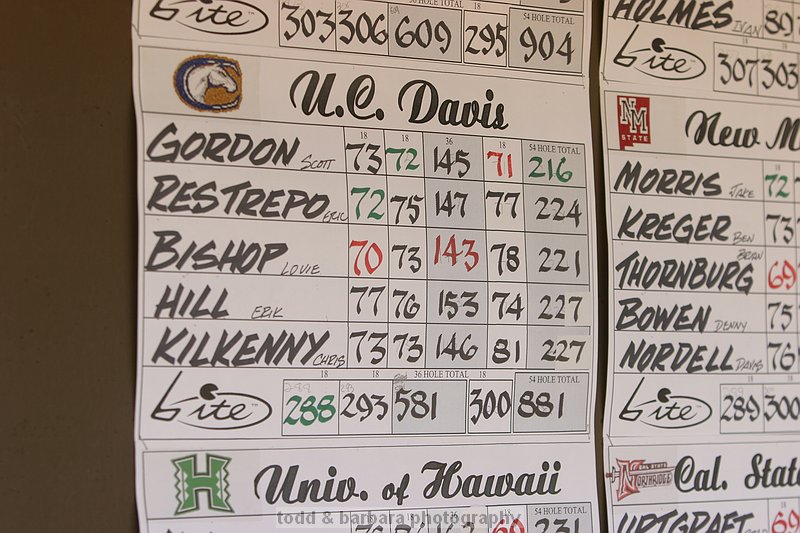 54 HOLE TOTAL
bite 303 306 609 295 904
U.C. Davis
18 18 36 18 54 HOLE TOTAL
GORDON SCOTT 73 72 145 71 216
RESTREPO ERIC 72 75 147 77 224
BISHOP LOUIE 70 73 143 78 221
HILL ERIK 77 76 153 74 227
KILKENNY CHRIS 73 73 146 81 227
18 18 36 HOLE TOTAL 18 54 HOLE TOTAL
bite™ 288 293 581 300 881
H Univ. of Hawaii
54 HOLE TOTAL
69 231
HOLMES IVAN 89
bite 307 303
NM STATE New M
MORRIS JAKE 72
KREGER BEN 73
THORNBURG BRIAN 69
BOWEN DENNY 75
NORDELL DAVIS 76
18
bite™ 289 300
CAL STATE NORTHRIDGE Cal. Stat
UPTGRAFT 69
todd & barbara photography